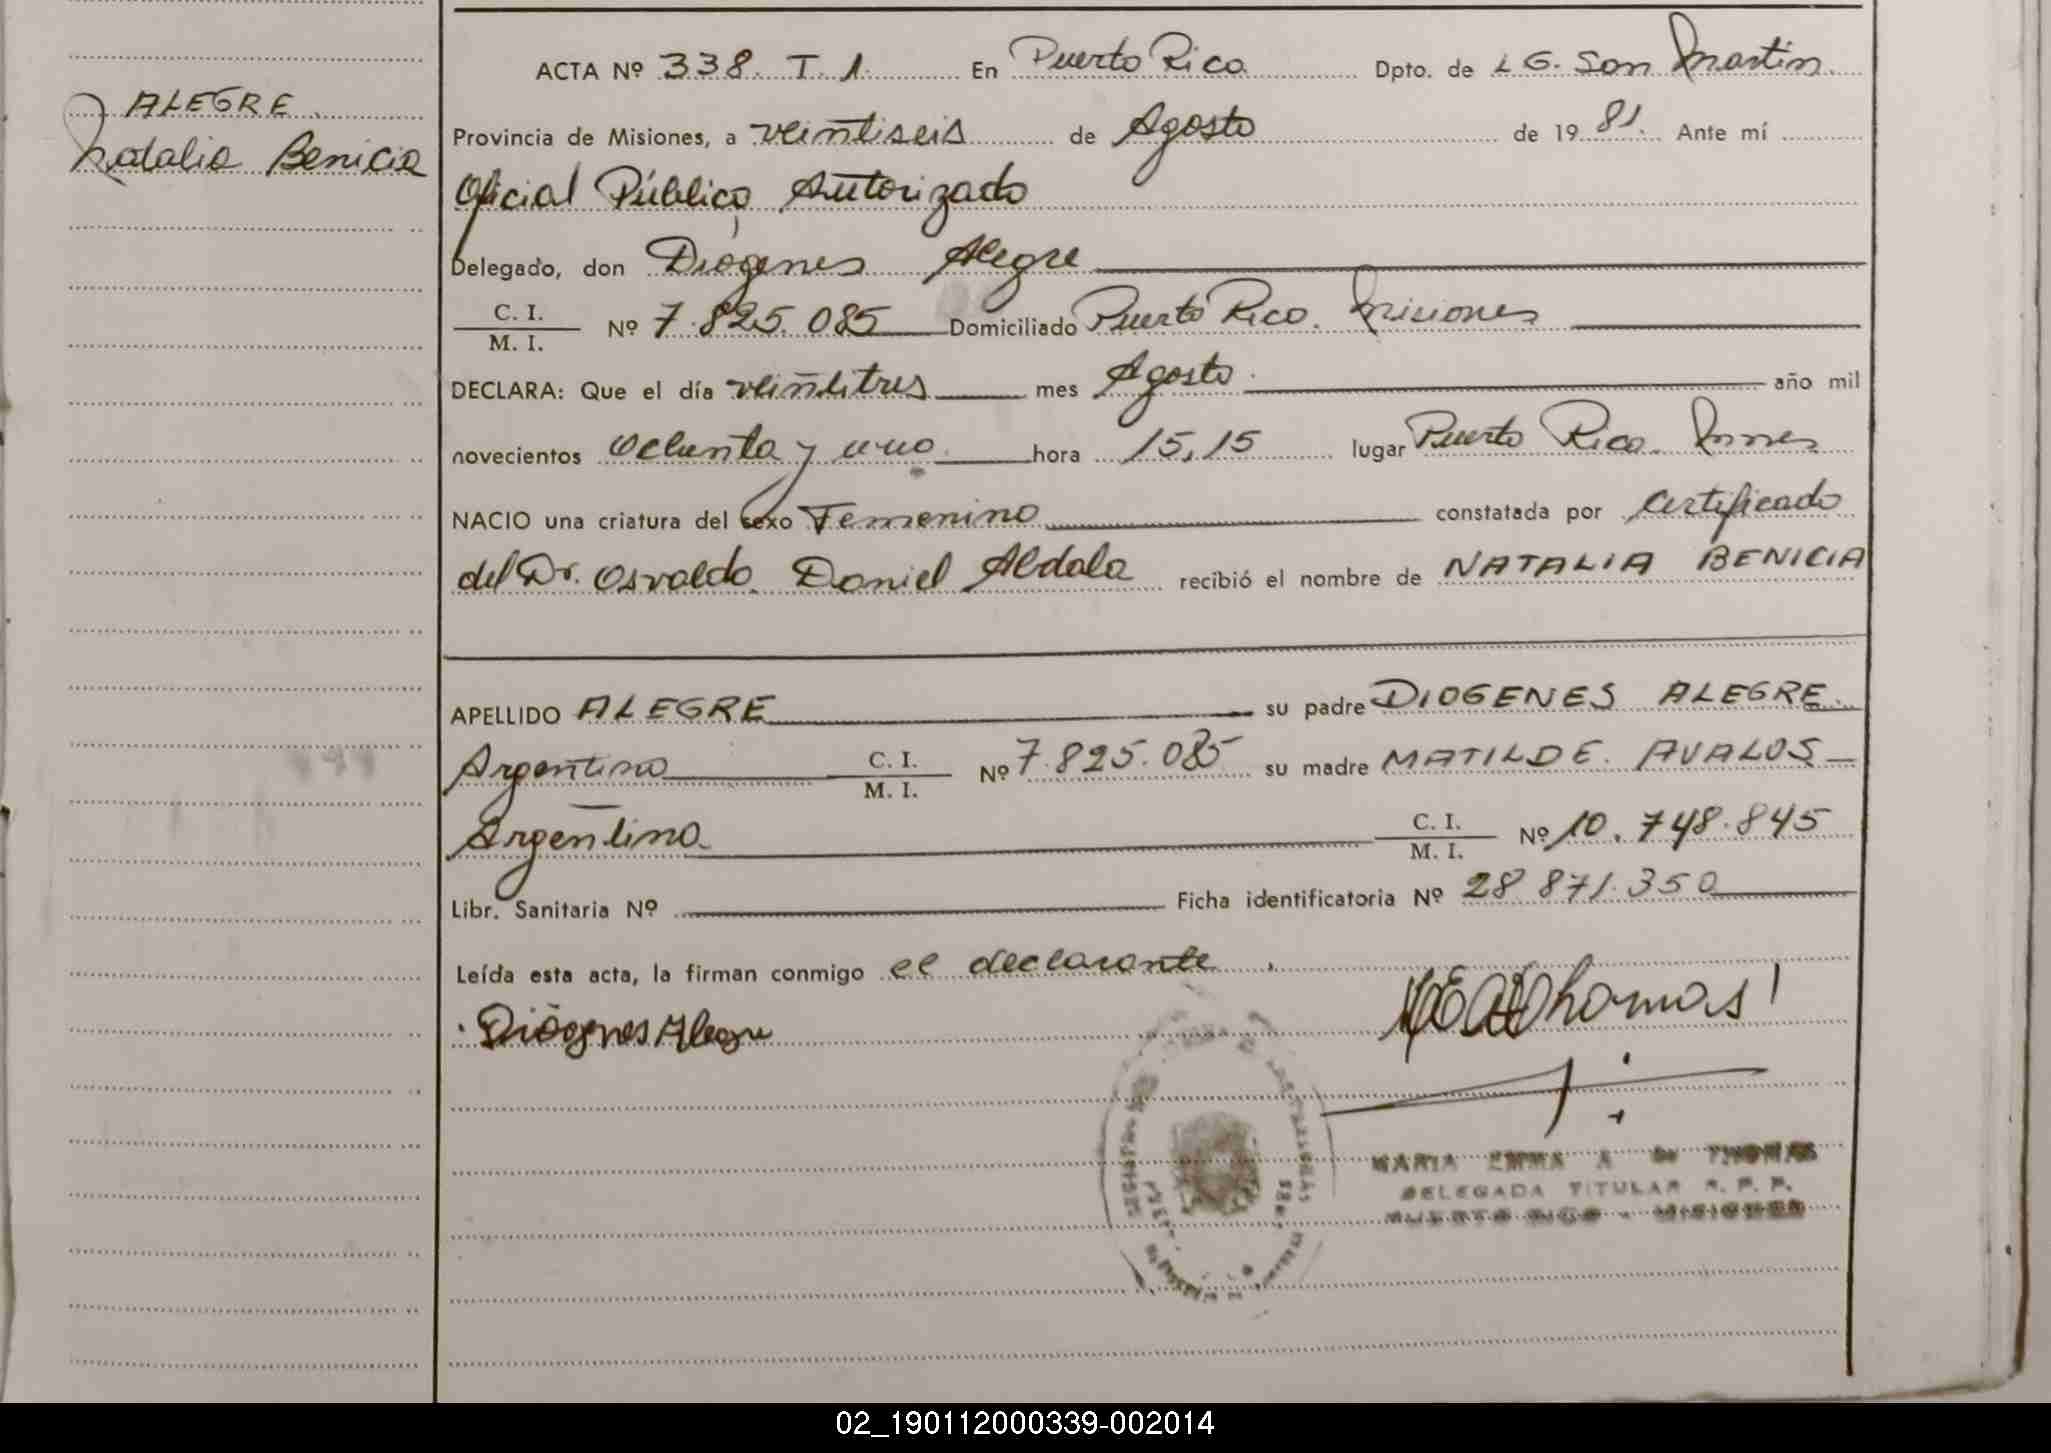 ALEGRE
Natalia Benicia
ACTA Nº 338. T. 1. En Puerto Rico Dpto. de L G. San Martin.
Provincia de Misiones, a veintiseis de Agosto de 1981. Ante mí
Oficial Público Autorizado
Delegado, don Diógenes Alegre
C. I.
M. I.
Nº 7.825.085 Domiciliado Puerto Rico. Misiones
DECLARA: Que el día veintitres mes Agosto año mil
novecientos Ochenta y uno hora 15,15 lugar Puerto Rico. Mnes
NACIO una criatura del sexo Femenino constatada por Certificado
del Dr. Osvaldo Daniel Aldala recibió el nombre de NATALIA BENICIA
APELLIDO ALEGRE su padre DIOGENES ALEGRE.
Argentino C. I.
M. I.
Nº 7.825.085 su madre MATILDE. AVALOS
Argentina C. I.
M. I.
Nº 10.748.845
Libr. Sanitaria Nº Ficha identificatoria Nº 28 871.350
Leída esta acta, la firman conmigo el declarante
Diógenes Alegre
MARIA EMMA A DE THOMAS
DELEGADA TITULAR R. P. P.
PUERTO RICO - MISIONES
02_190112000339-002014